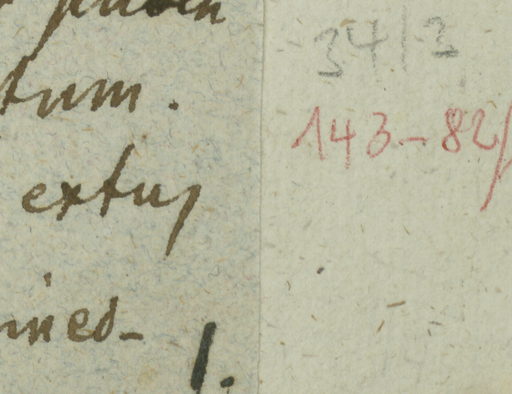 tum.
extus
ines-
1.
3413
143-82